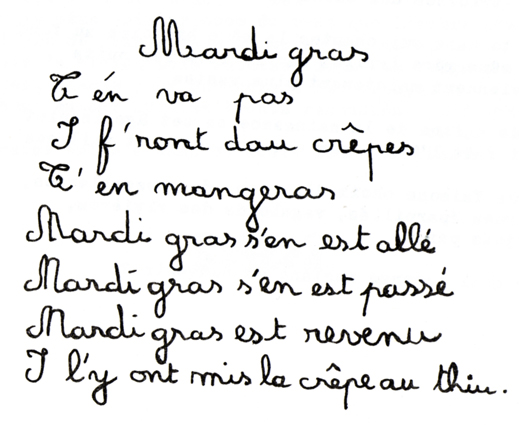 Mardi gras
T én va pas
I f'ront dau crêpes
T' en mangeras
Mardi gras s'en est allé
Mardi gras s'en est passé
Mardi gras est revenu
I l'y ont mis la crêpe au thiu.